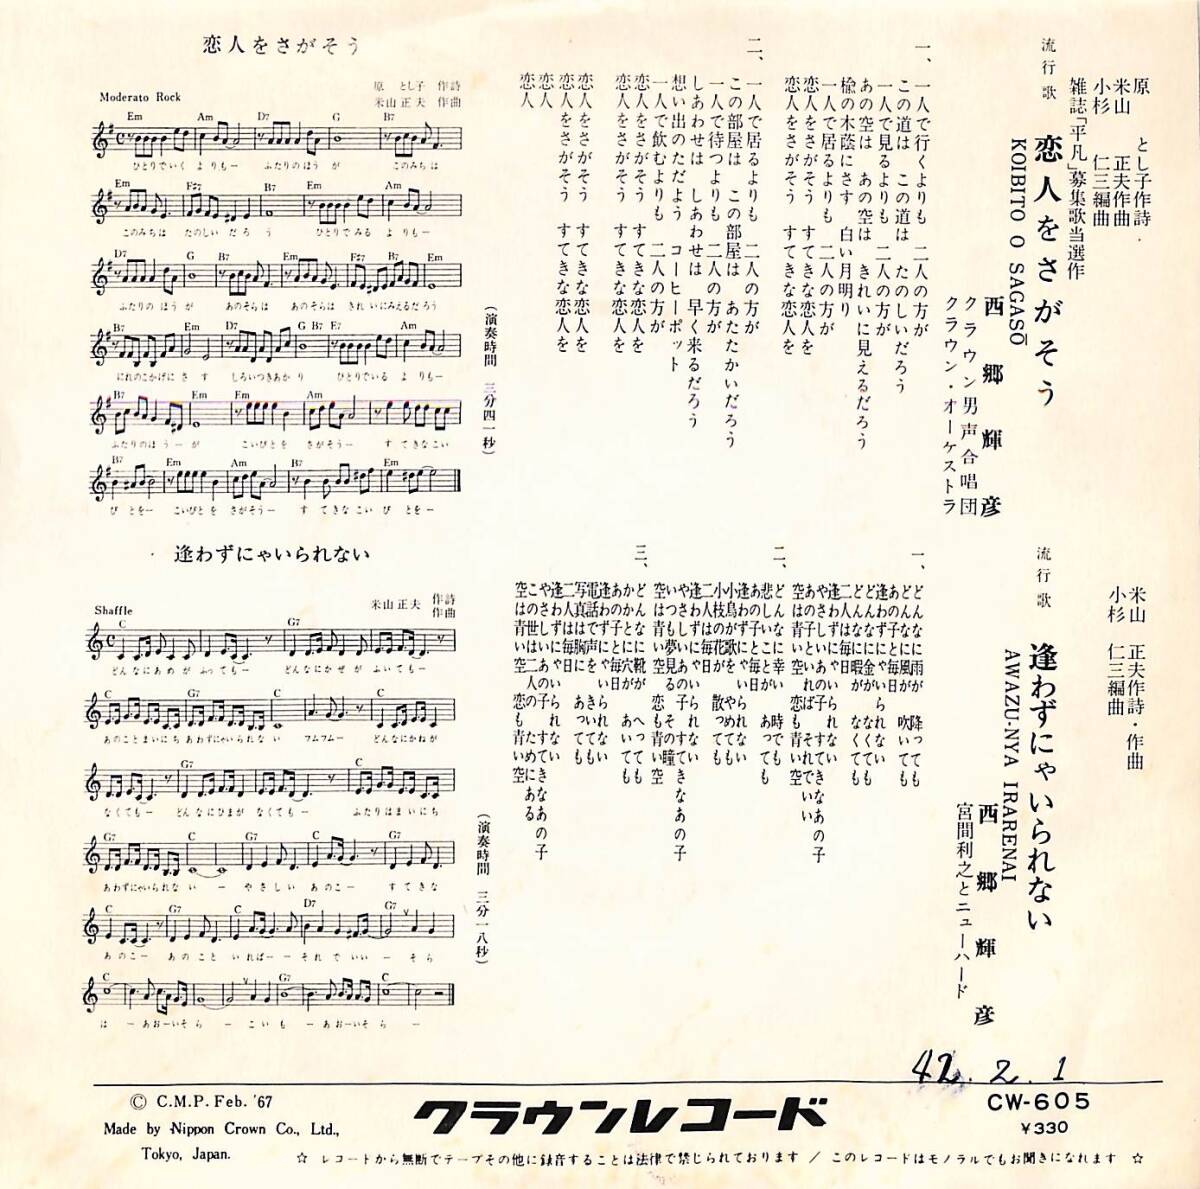 恋人をさがそう
原 とし子 作詩
米山正夫 作曲
Moderato Rock
Em Am D7 G B7
ひとりでいく よりもー ふたりのほう が このみちは
Em F#7 B7 Em
このみちは たのしいだ ろ う ひとりでみる よ り も ー
D7 G B7 Em F#7 B7
ふたりの ほう が あのそらは あのそらは きれいにみえるだろう
B7 Em Am G B7 Em Am
にれのこかげに さ す しろいつきあか り ひとりでいる よ り も ー
B7 Em Em Am
ふたりのほ う ー が こいびとを さがそうー す てきなこい
B7 Em Am B7 Em
び とをー こいびとを さがそうー す てきなこい び とをー
(演奏時間 三分四一秒)
逢わずにゃいられない
米山正夫 作詩
作曲
Shaffle
C G7
どんなにあめが ふっても ー どんなにかぜが ふいても ー
C C
あのことまいにち あわずにゃいられな い フムフムー どんなにかねが
G7 C
なくても ー どん なにひまが なくても ー ふたりはまいにち
G7 C G7 C G7
あわずにゃいられな い ー やさしい あのこ ー す てきな
C G7 C D7 G7
あのこー あのこと いればー ー それで いい ー そら
C G7 C
は ー あおーいそら ー こい も ー あおーいそ ら ー
(演奏時間 三分一八秒)
流行歌
恋人をさがそう
KOIBITO O SAGASŌ
原 とし子作詩・
米山 正夫作曲
小杉 仁三編曲
雑誌「平凡」募集歌当選作
西郷輝彦
クラウン男声合唱団
クラウン・オーケストラ
一、
一人で行くよりも 二人の方が
この道は この道は たのしいだろう
一人で見るよりも 二人の方が
あの空は あの空は きれいに見えるだろう
楡の木蔭にさす 白い月明り
一人で居るよりも 二人の方が
恋人をさがそう すてきな恋人を
恋人をさがそう すてきな恋人を
二、
一人で居るよりも 二人の方が
この部屋は この部屋は あたたかいだろう
一人で待つよりも 二人の方が
しあわせは しあわせは 早く来るだろう
想い出のただよう コーヒーポット
一人で飲むよりも 二人の方が
恋人をさがそう すてきな恋人を
恋人をさがそう すてきな恋人を
恋人をさがそう すてきな恋人を
恋人をさがそう すてきな恋人を
恋人
恋人
流行歌
逢わずにゃいられない
AWAZU-NYA IRARENAI
米山 正夫作詩・作曲
小杉 仁三編曲
西郷輝彦
宮間利之とニューハード
一、
どんなに雨が 降っても
どんなに風が 吹いても
あの子と毎日
逢わずにゃいられない
どんなに金が なくても
どんなに暇が なくても
二人は毎日
逢わずにゃいられない
やさしいあの子 すてきなあの子
あの子といれば それでいい
空は青い空 恋も青い空
二、
どんなに幸い 時でも
悲しいことが あっても
あの子と毎日
逢わずにゃいられない
小鳥が歌を やめても
小枝の花が 散っても
二人は毎日
逢わずにゃいられない
やさしいあの子 すてきなあの子
いつも夢見る その瞳
空は青い空 恋も青い空
三、
どんなに靴が へっても
かかとに穴が あいても
あの子と毎日
逢わずにゃいられない
電話で声を きいても
写真を胸に あつても
二人は毎日
逢わずにゃいられない
やさしいあの子 すてきなあの子
この世は二人の ためにある
空は青い空 恋も青い空
42. 2. 1
© C.M.P. Feb. '67
Made by Nippon Crown Co., Ltd.,
Tokyo, Japan.
クラウンレコード
CW-605
¥330
☆ レコードから無断でテープその他に録音することは法律で禁じられております / このレコードはモノラルでもお聞きになれます ☆